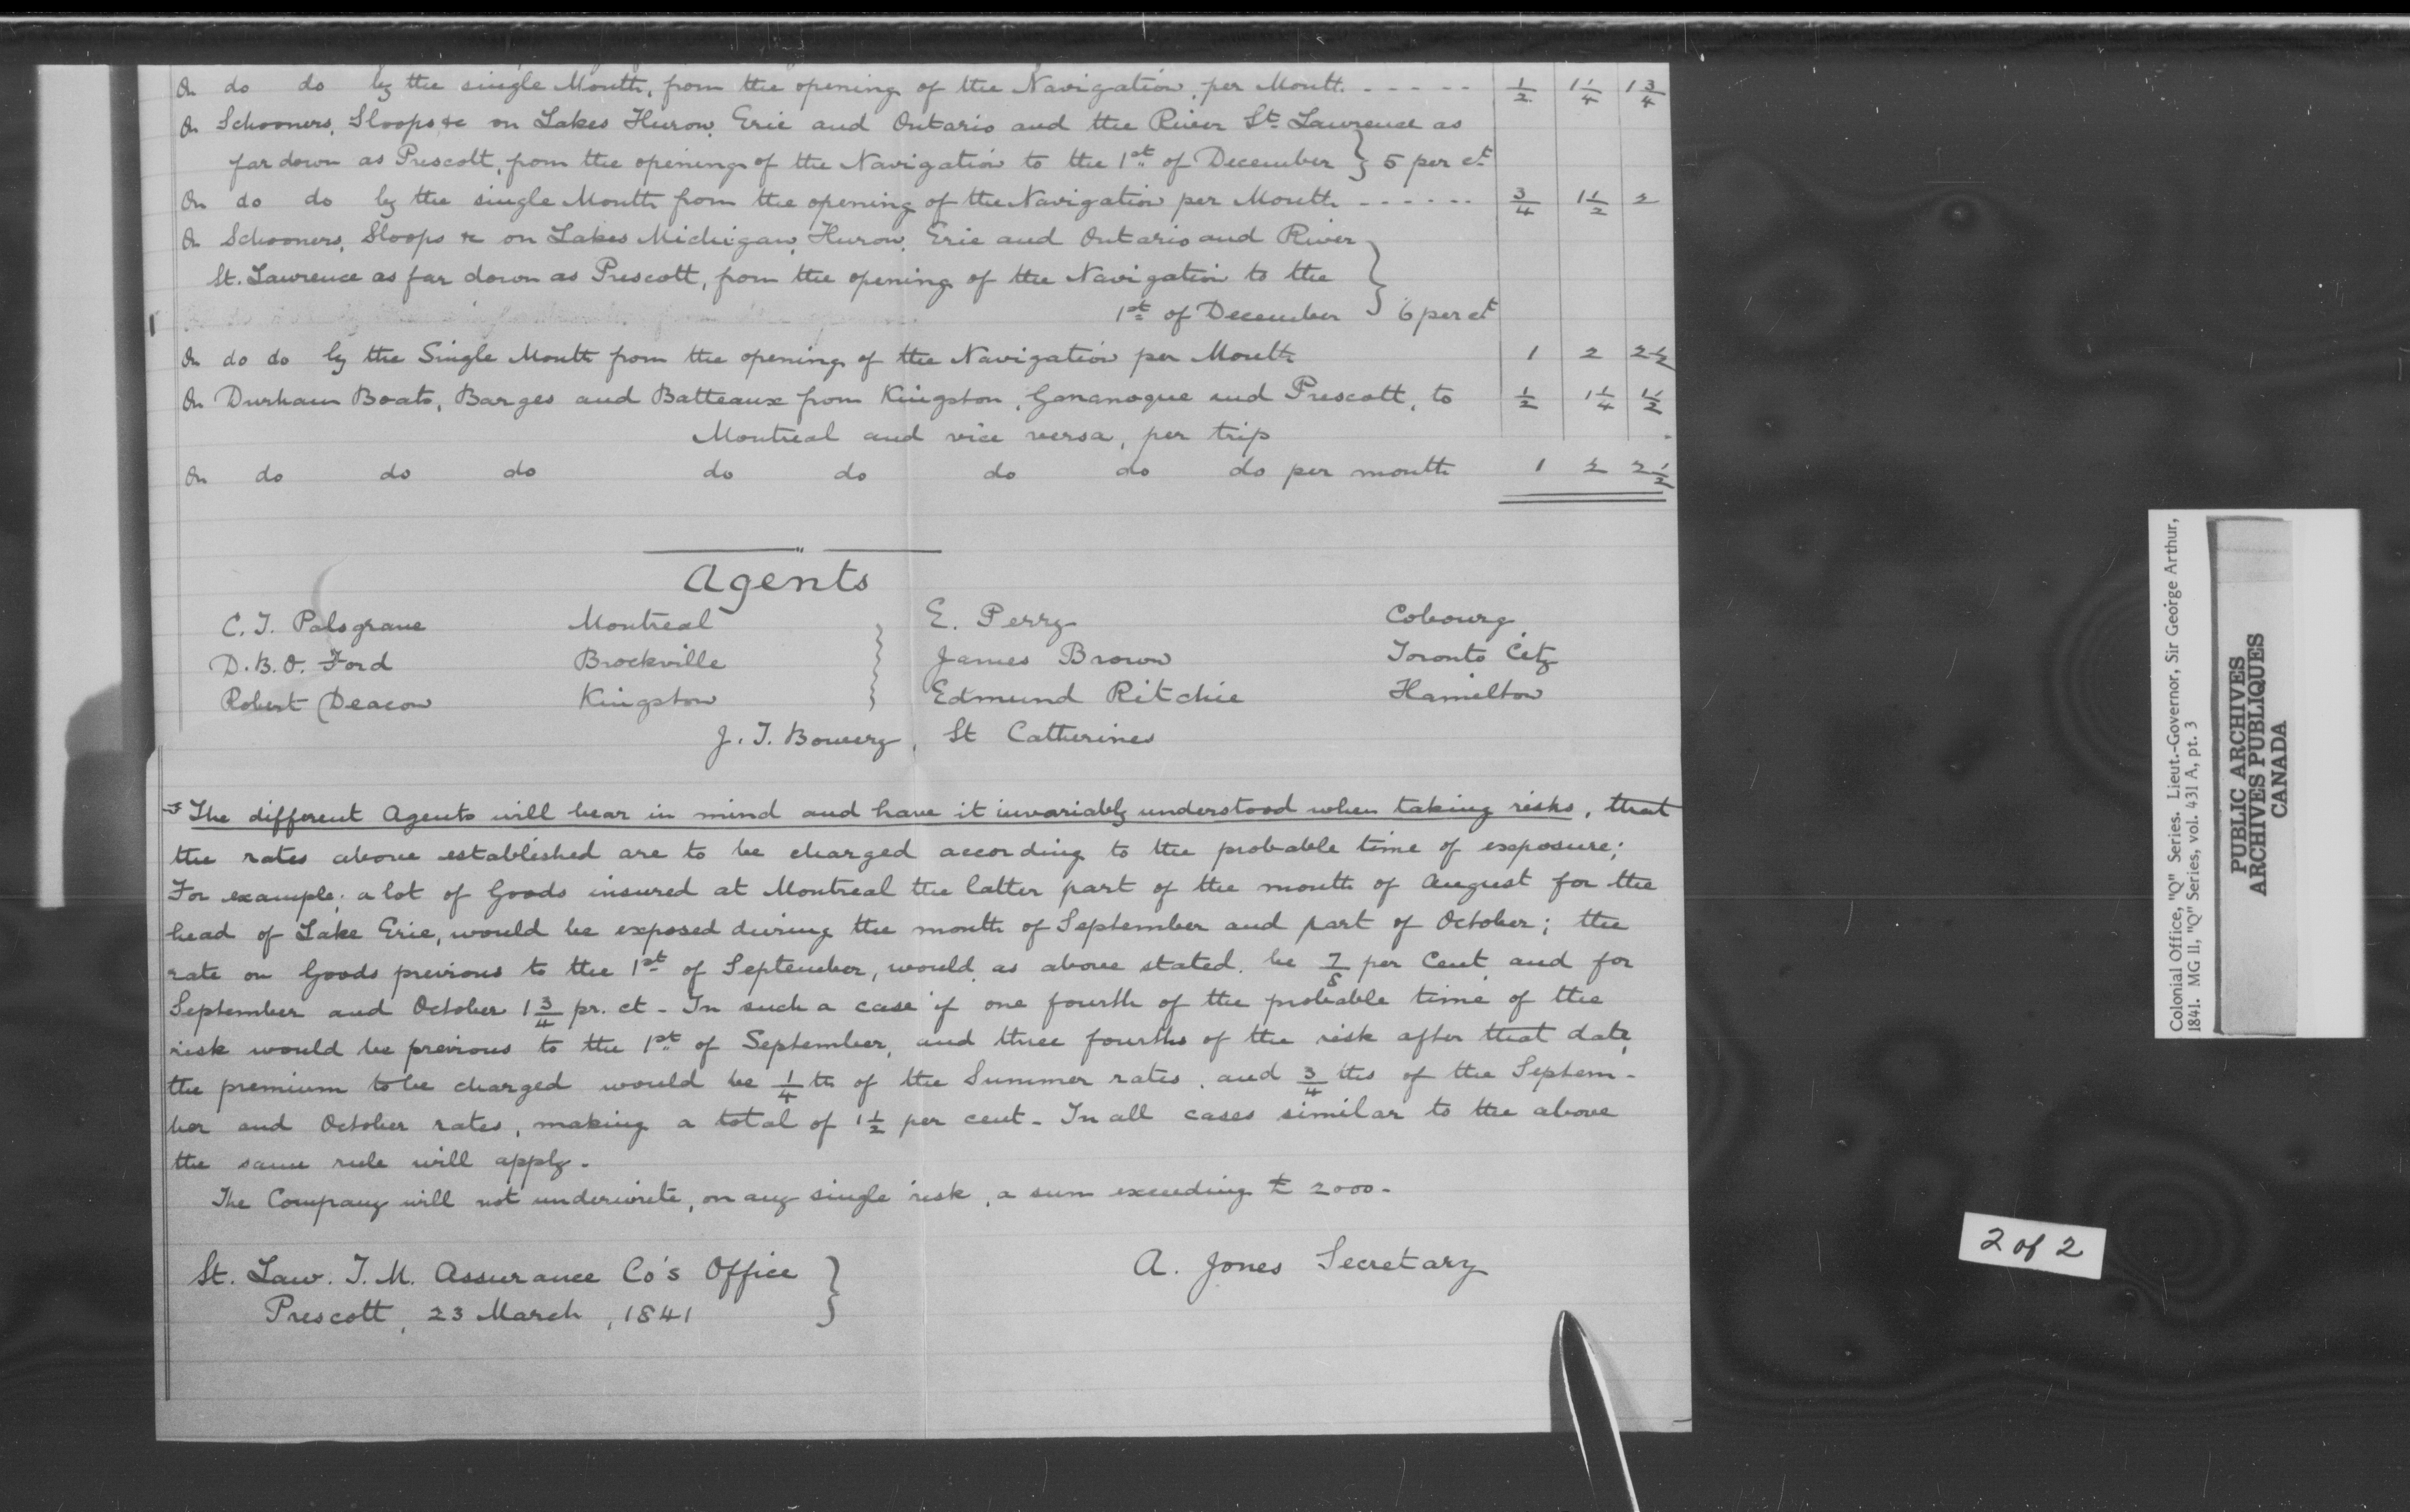 On do do by the single Month, from the opening of the Navigation, per Month. - - - - - ½ 1¼ 1¾
On Schooners, Sloops &c on Lakes Huron, Erie and Ontario and the River St. Lawrence as
far down as Prescott, from the opening of the Navigation to the 1st of December } 5 per ct
On do do by the single Month from the opening of the Navigation per Month - - - - - - ¾ 1½ 2
On Schooners, Sloops &c on Lakes Michigan, Huron, Erie and Ontario and River
St. Lawrence as far down as Prescott, from the opening of the Navigation to the
1st of December } 6 per ct
On do do by the Single Month from the opening of the Navigation per Month 1 2 2½
On Durham Boats, Barges and Batteaux from Kingston, Gananoque and Prescott, to ½ 1¼ 1½
Montreal and vice versa, per trip
On do do do do do do do do per month 1 2 2½
Agents
C. T. Palsgrave Montreal } E. Perry Cobourg
D.B.O. Ford Brockville } James Brown Toronto City
Robert Deacon Kingston } Edmund Ritchie Hamilton
J. T. Bowery, St Catherines
The different Agents will bear in mind and have it invariably understood when taking risks, that
the rates above established are to be charged according to the probable time of exposure;
For example; a lot of Goods insured at Montreal the latter part of the month of August for the
head of Lake Erie, would be exposed during the month of September and part of October; the
rate on Goods previous to the 1st of September, would, as above stated, be 7/8 per Cent, and for
September and October 1¾ pr. ct - In such a case if one fourth of the probable time of the
risk would be previous to the 1st of September, and three fourths of the risk after that date,
the premium to be charged would be ¼th of the Summer rates, and ¾ths of the Septem-
ber and October rates, making a total of 1½ per cent - In all cases similar to the above
the same rule will apply -
The Company will not underwrite, on any single risk, a sum exceeding £ 2000 -
St. Law. I. M. Assurance Co's Office }
Prescott, 23 March, 1841
A. Jones Secretary
Colonial Office, "Q" Series. Lieut.-Governor, Sir George Arthur,
1841. MG 11, "Q" Series, vol. 431 A, pt. 3
PUBLIC ARCHIVES
ARCHIVES PUBLIQUES
CANADA
2 of 2